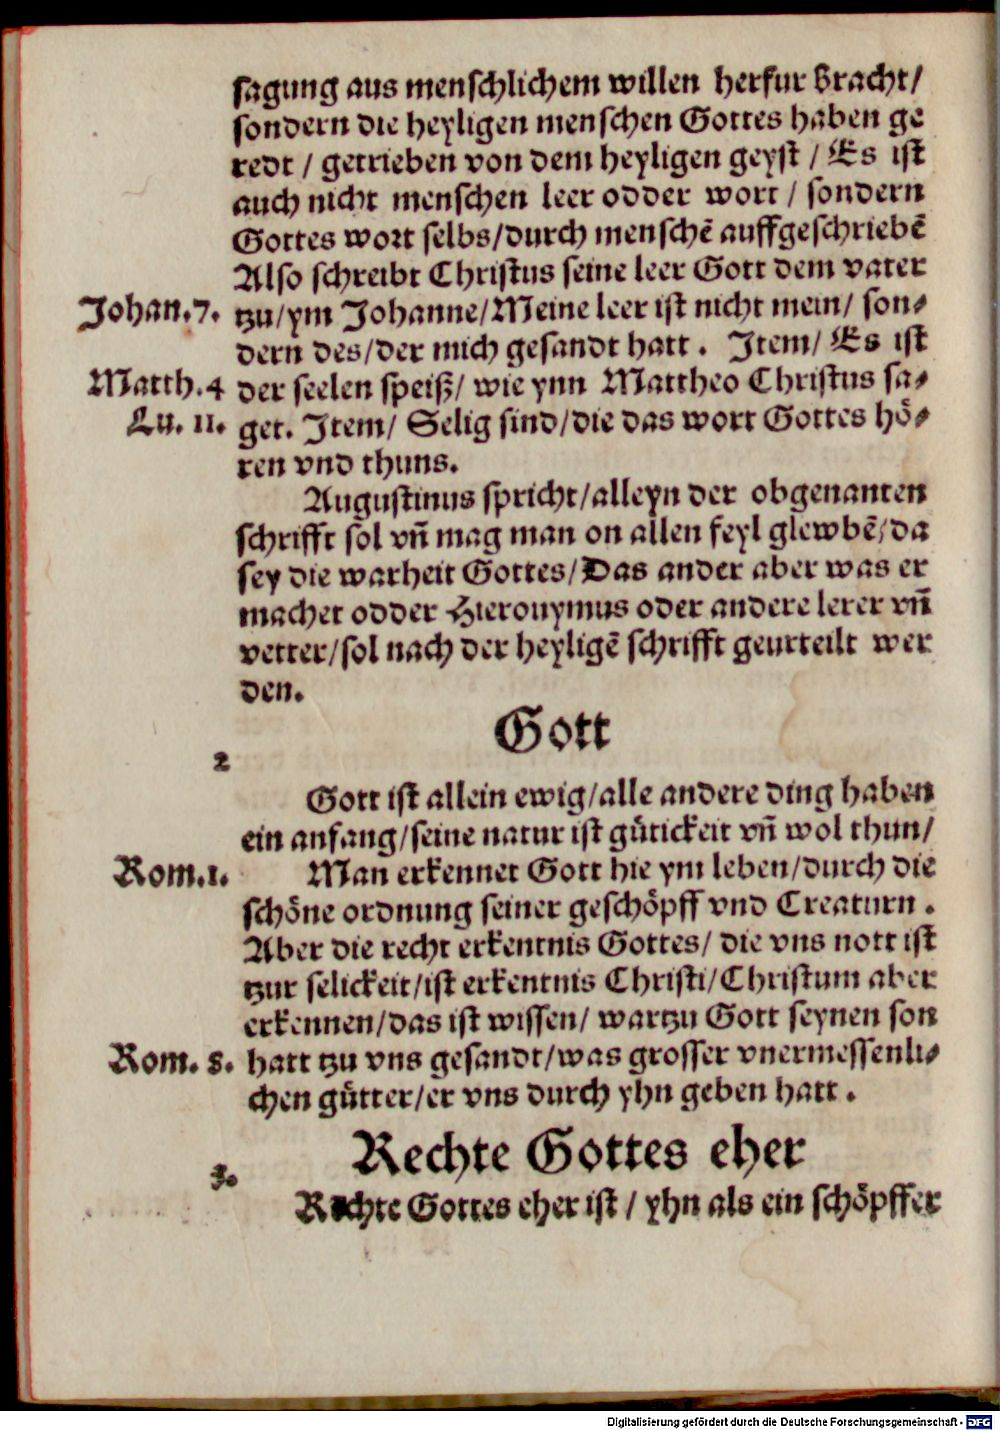 sagung aus menschlichem willen herfur bracht/
sondern die heyligen menschen Gottes haben ge
redt / getrieben von dem heyligen geyst / Es ist
auch nicht menschen leer odder wort / sondern
Gottes wort selbs/durch menschẽ auffgeschriebẽ
Also schreibt Christus seine leer Gott dem vater
Johan.7. tzu/ym Johanne/Meine leer ist nicht mein/ son⸗
dern des/der mich gesandt hatt . Item/ Es ist
Matth.4 der seelen speiß/ wie ynn Mattheo Christus sa⸗
Lu. 11. get. Item/ Selig sind/die das wort Gottes hoͤ⸗
ren vnd thuns.
Augustinus spricht/alleyn der obgenanten
schrifft sol vñ mag man on allen feyl glewbẽ/da
sey die warheit Gottes/Das ander aber was er
machet odder Hieronymus oder andere lerer vñ
vetter/sol nach der heyligẽ schrifft geurteilt wer
den.
Gott
2
Gott ist allein ewig/alle andere ding haben
ein anfang/seine natur ist guͤtickeit vñ wol thun/
Rom.1. Man erkennet Gott hie ym leben/durch die
schoͤne ordnung seiner geschoͤpff vnd Creaturn .
Aber die recht erkentnis Gottes/ die vns nott ist
tzur selickeit/ist erkentnis Christi/Christum aber
erkennen/das ist wissen/ wartzu Gott seynen son
Rom. 8. hatt tzu vns gesandt/was grosser vnermessenli⸗
chen guͤtter/er vns durch yhn geben hatt .
Rechte Gottes eher
3.
Rechte Gottes eher ist / yhn als ein schoͤpffer
Digitalisierung gefördert durch die Deutsche Forschungsgemeinschaft - DFG